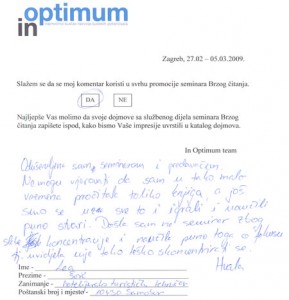 inoptimum
Zagreb, 27.02 – 05.03.2009.
Slažem se da se moj komentar koristi u svrhu promocije seminara Brzog čitanja.
DA NE
Najljepše Vas molimo da svoje dojmove sa službenog dijela seminara Brzog
čitanja zapišete ispod, kako bismo Vaše impresije uvrstili u katalog dojmova.
In Optimum team
Oduševljena sam seminarom i predavačem.
Ne mogu vjerovati da sam u tako malo
vremena pročitala toliko knjiga a još
smo se uz sve to i igrali i naučili
puno stvari. Došla sam na seminar zbog
slabe koncentracije i naučila puno toga o
i uvidjela nije teško skoncentrirati se.
Hvala
Ime - Lea
Prezime -
Zanimanje - hotelijersko turistički tehničar
Poštanski broj i mjesto - 10430 Samobor